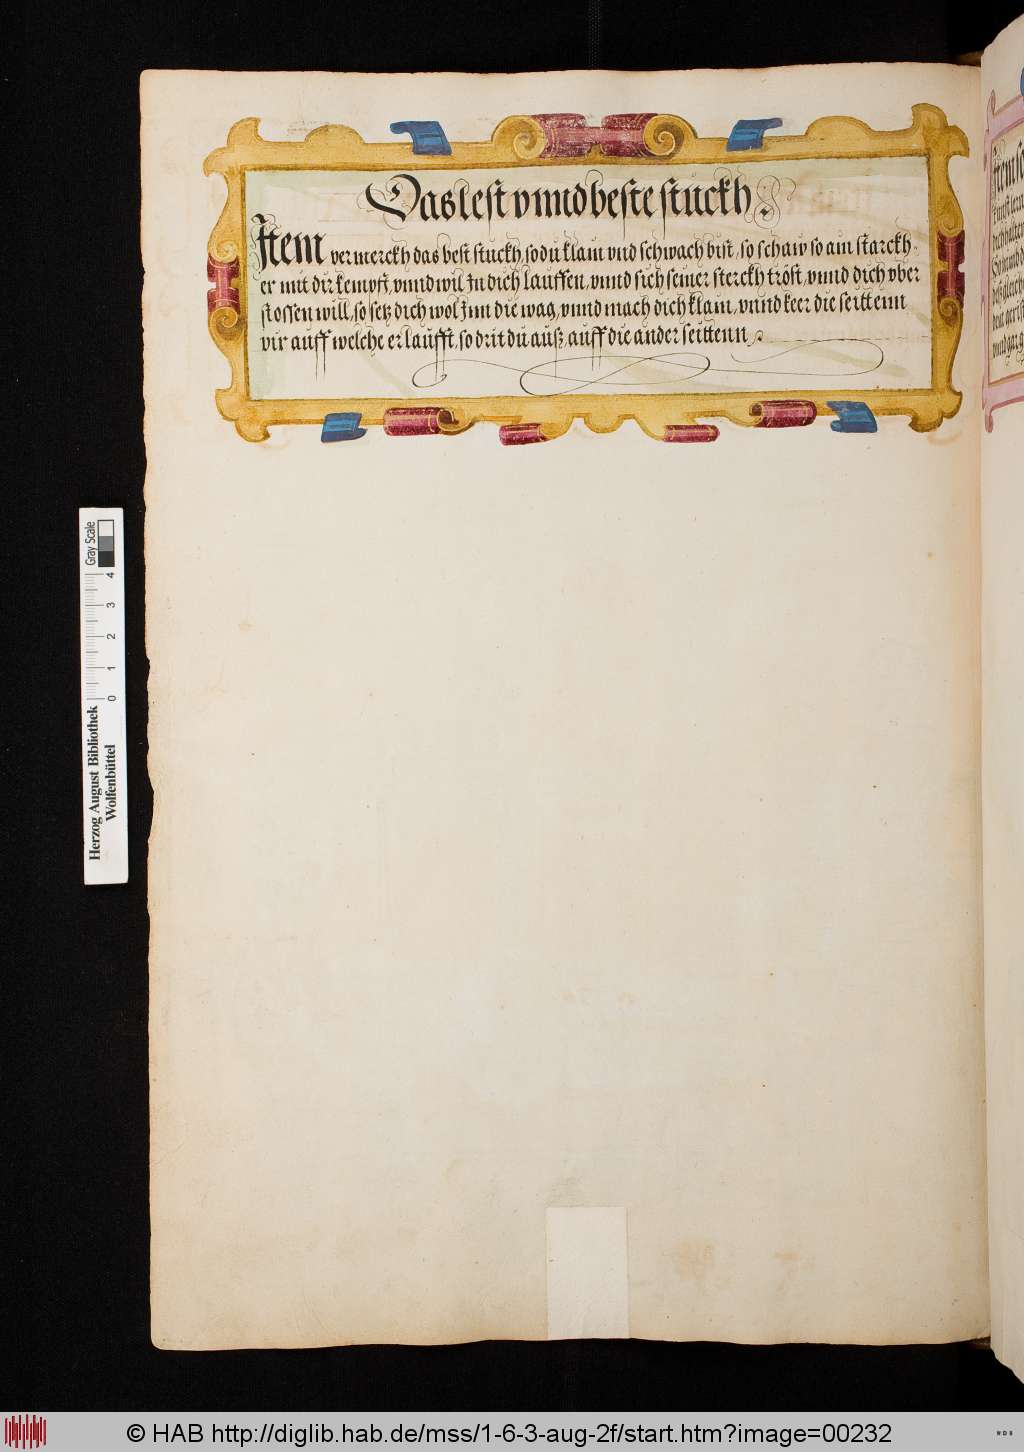 Das lest vnnd beste stuckh
Item vermerckh das best stuckh, so du klain vnd schwach bist, so schaw so ain starckh
er mit dir kempft, vnnd wil Zu dich lauffen, vnnd sich seiner sterckh tröst, vnnd dich vber
stossen will, so setz dich wol Zun die wag, vnnd mach dich klain, vnnd keer die seittenn
vir auff welche er laufft, so drit du auß, auff die ander seittenn
Gray Scale
0 1 2 3 4
Herzog August Bibliothek
Wolfenbüttel
© HAB http://diglib.hab.de/mss/1-6-3-aug-2f/start.htm?image=00232